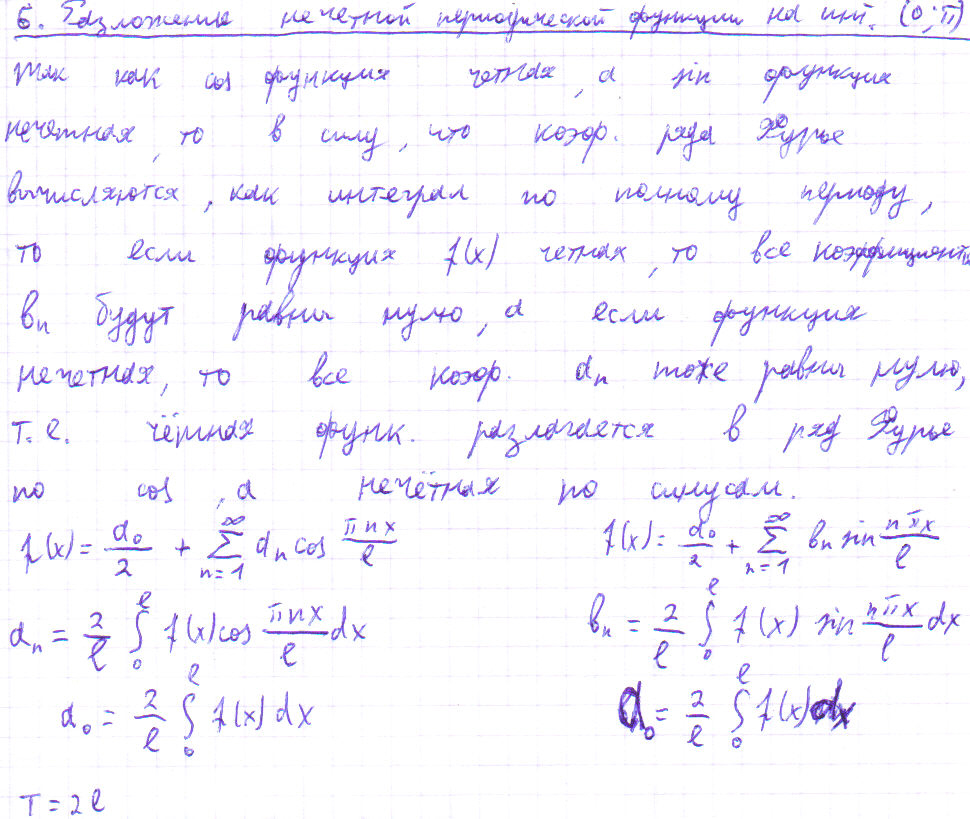 6. Разложение нечетной периодической функции на инт. (0; π)
Так как cos функция четная, а sin функция
нечетная, то в силу, что коэф. ряда Фурье
вычисляются, как интеграл по полному периоду,
то если функция f(x) четная, то все коэффициенты
bn будут равны нулю, а если функция
нечетная, то все коэф. an тоже равны нулю,
т.е. чётная функ. разлагается в ряд Фурье
по cos, а нечётная по синусам.
f(x) = a₀/2 + ∑_{n=1}^{∞} aₙ cos πnx/l    f(x) = a₀/2 + ∑_{n=1}^{∞} bₙ sin nπx/l
aₙ = 2/l ∫₀^l f(x) cos πnx/l dx    bₙ = 2/l ∫₀^l f(x) sin nπx/l dx
a₀ = 2/l ∫₀^l f(x) dx    a₀ = 2/l ∫₀^l f(x) dx
T = 2l